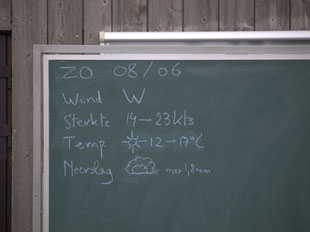 ZO 08/06
Wind W
Sterkte 14→23kts
Temp 12→17°C
Neerslag max 1,8mm